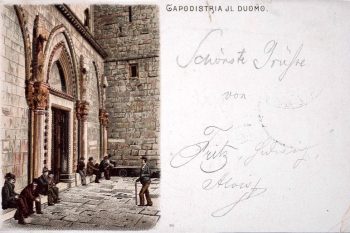 CAPODISTRIA JL DUOMO.
Schönste Grüße
von
Fritz,